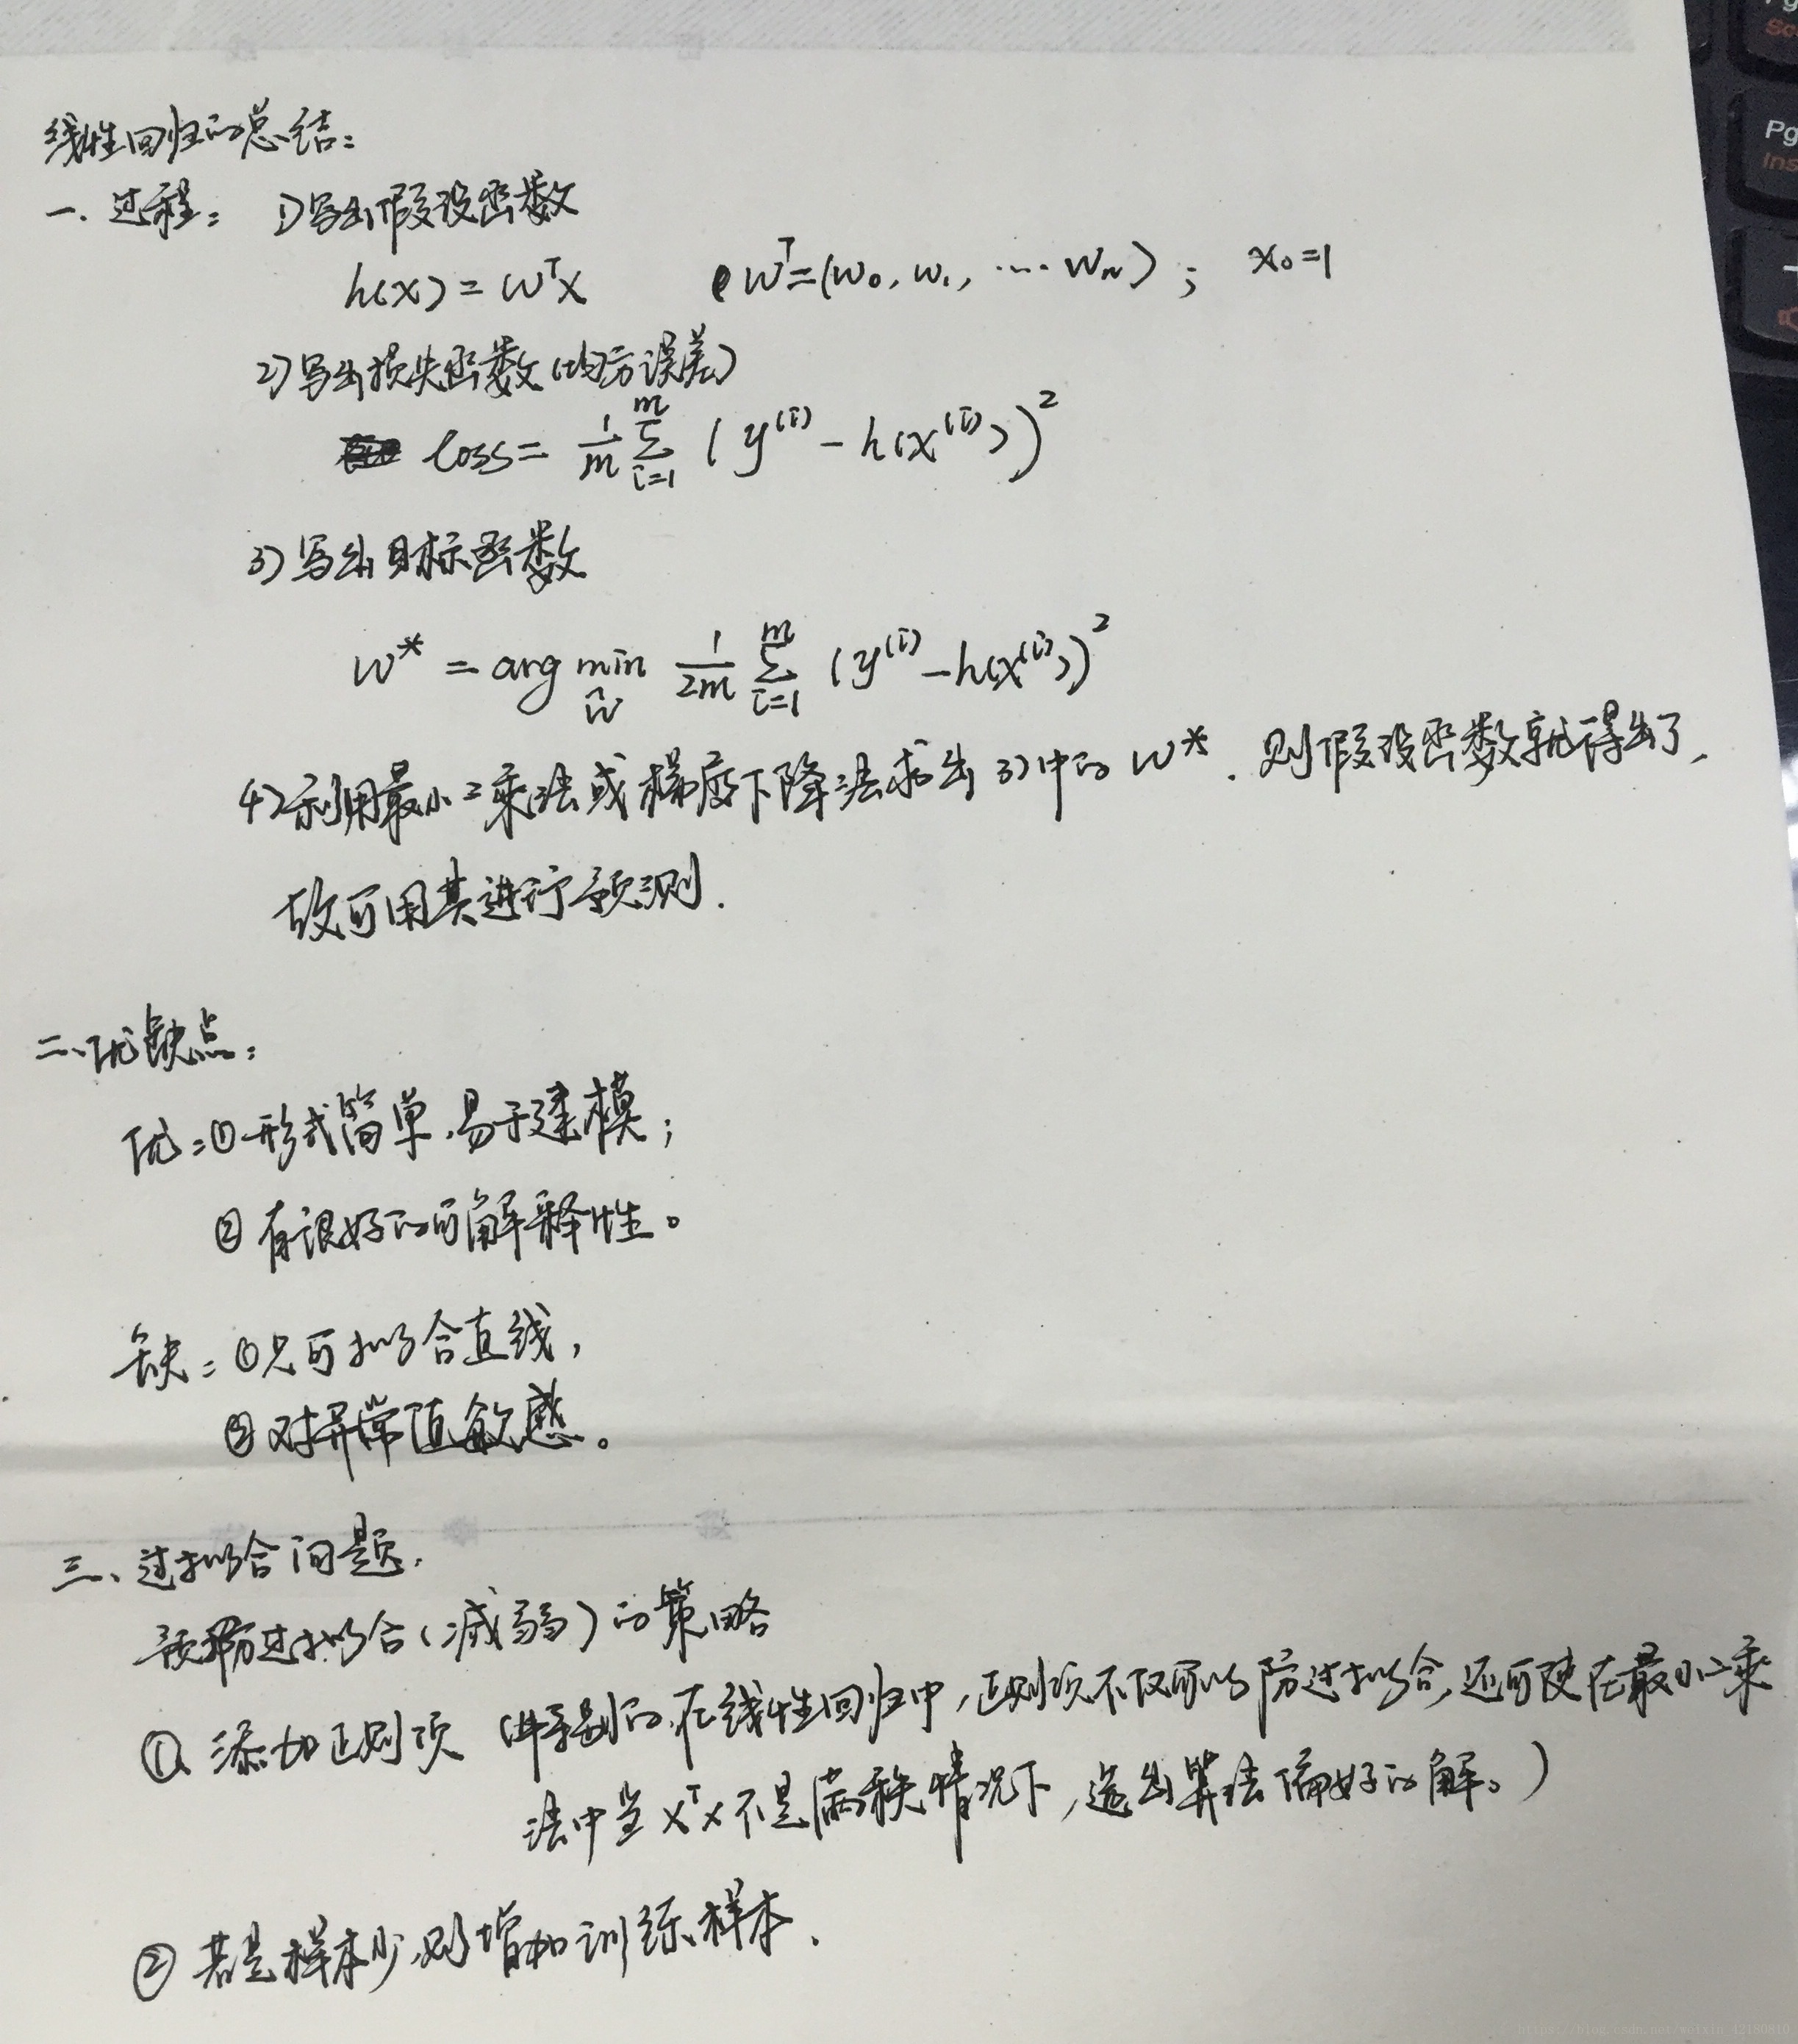 线性回归的总结:
一. 过程: 1)写出假设函数
h(x)=wᵀx wᵀ=(w₀, w₁, ... wₙ); x₀=1
2)写出损失函数(均方误差)
loss= 1/m Σ_{i=1}^{m} (y^{(i)} - h(x^{(i)}))²
3)写出目标函数
w* = arg min_{w} 1/2m Σ_{i=1}^{m} (y^{(i)} - h(x^{(i)}))²
4)利用最小二乘法或梯度下降法求出3)中的 w*. 则假设函数就得出了,
故可用其进行预测.
二、优缺点:
优:①形式简单,易于建模;
②有很好的可解释性。
缺:①只可拟合直线,
②对异常值敏感。
三、过拟合问题.
预防过拟合(减弱)的策略
①、添加正则项 (特别的,在线性回归中,正则项不仅可以防过拟合,还可使在最小二乘
法中当xᵀx不是满秩情况下,选出算法偏好的解。)
②若是样本少,则增加训练样本.
Pg
Ins
https://blog.csdn.net/weixin_42180810